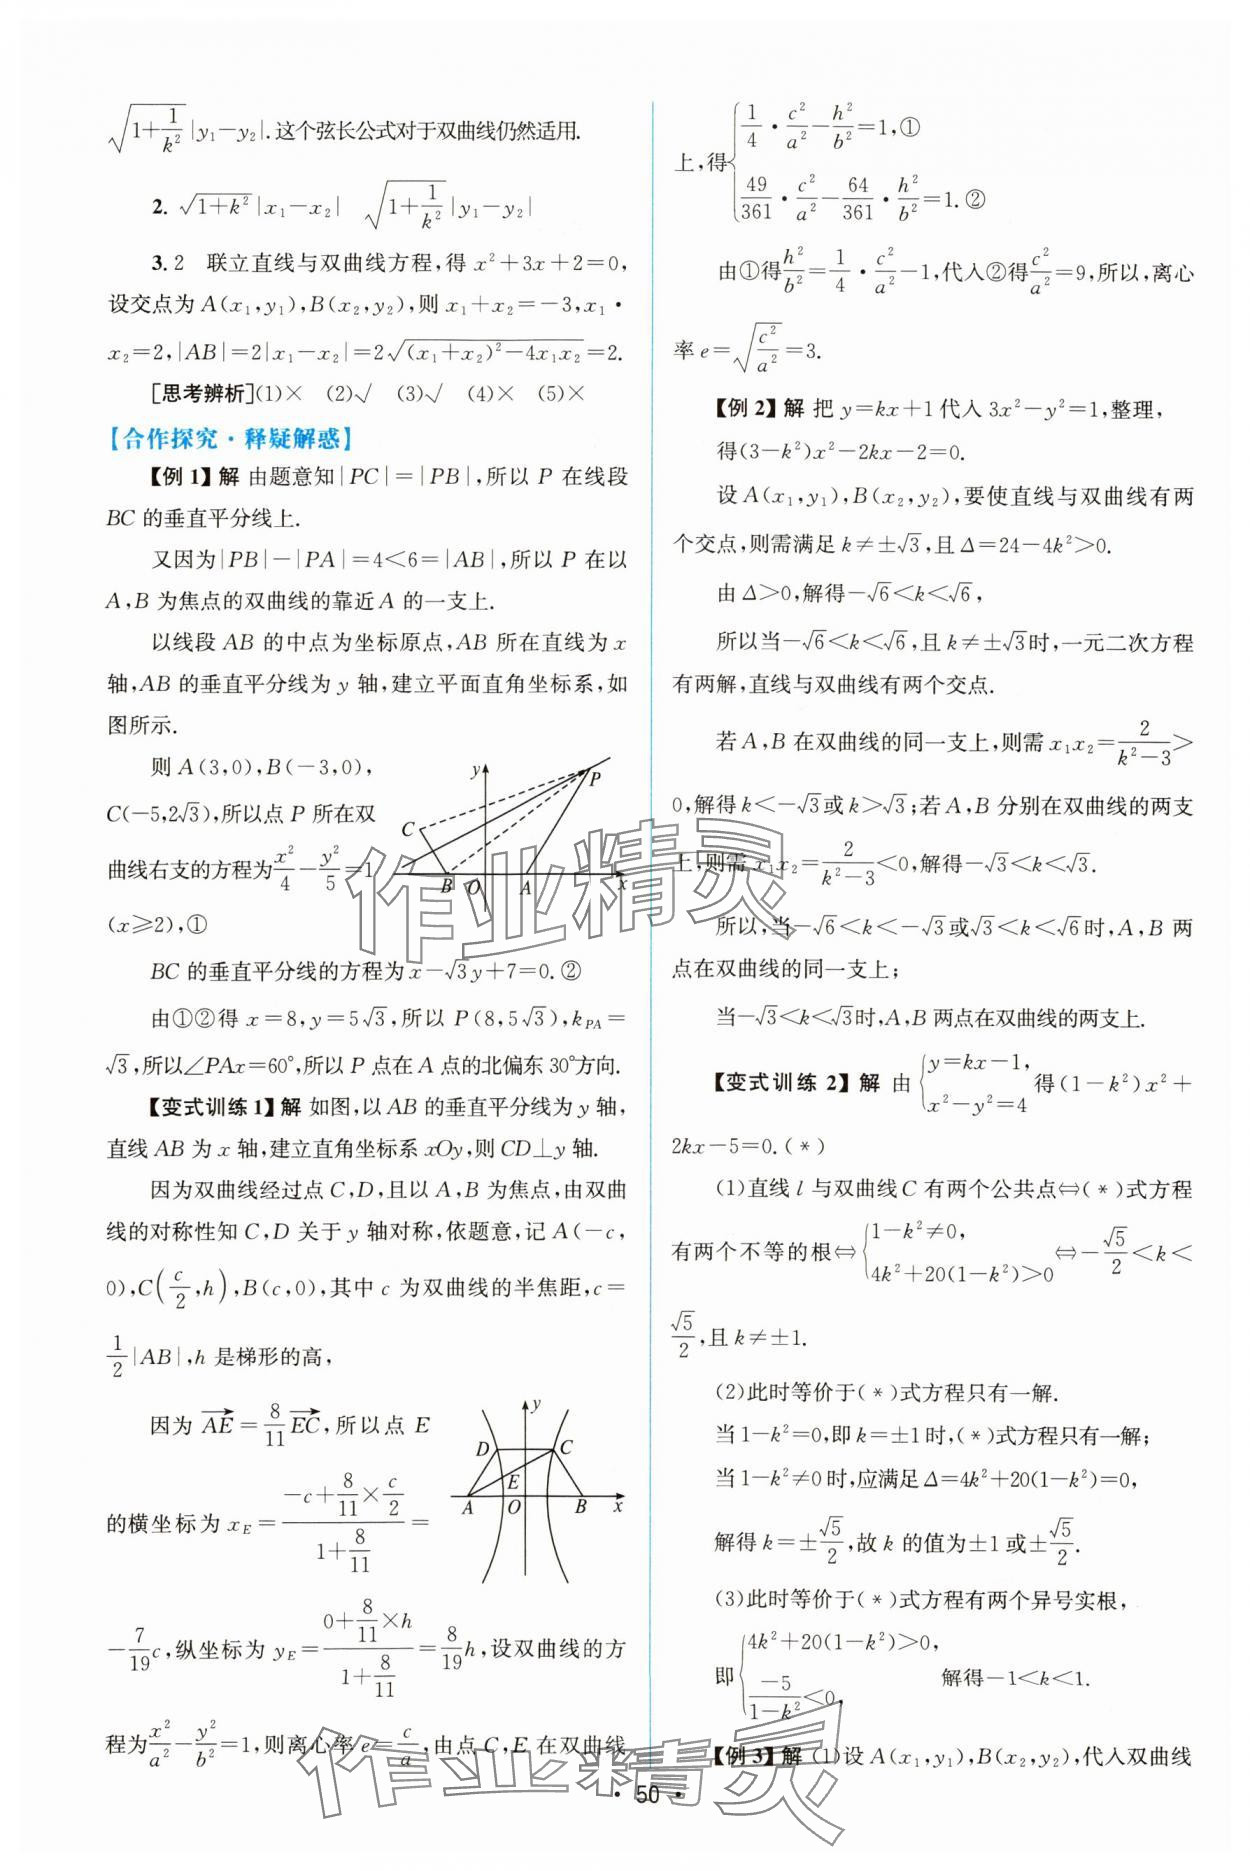 $\sqrt{1+\frac{1}{k^2}}|y_1-y_2|$.这个弦长公式对于双曲线仍然适用.
2. $\sqrt{1+k^2}|x_1-x_2|$ $\sqrt{1+\frac{1}{k^2}}|y_1-y_2|$
3. 2 联立直线与双曲线方程,得 $x^2+3x+2=0$,
设交点为 $A(x_1,y_1),B(x_2,y_2)$,则 $x_1+x_2=-3,x_1·$
$x_2=2,|AB|=2|x_1-x_2|=2\sqrt{(x_1+x_2)^2-4x_1x_2}=2.$
[思考辨析](1)× (2)√ (3)√ (4)× (5)×
【合作探究·释疑解惑】
【例 1】解 由题意知|PC|=|PB|,所以 P 在线段
BC 的垂直平分线上.
又因为|PB|-|PA|=4<6=|AB|,所以 P 在以
A,B 为焦点的双曲线的靠近 A 的一支上.
以线段 AB 的中点为坐标原点,AB 所在直线为 x
轴,AB 的垂直平分线为 y 轴,建立平面直角坐标系,如
图所示.
则 A(3,0),B(-3,0),
C(-5,2$\sqrt{3}$),所以点 P 所在双
曲线右支的方程为$\frac{x^2}{4}-\frac{y^2}{5}=1$
(x≥2),①
y
P
C
B
O
A
x
BC 的垂直平分线的方程为 $x-\sqrt{3}y+7=0$.②
由①②得 $x=8,y=5\sqrt{3}$,所以 $P(8,5\sqrt{3}),k_{PA}=$
$\sqrt{3}$,所以∠PAx=60°,所以 P 点在 A 点的北偏东 30°方向.
【变式训练 1】解 如图,以 AB 的垂直平分线为 y 轴,
直线 AB 为 x 轴,建立直角坐标系 xOy,则 CD⊥y 轴.
因为双曲线经过点 C,D,且以 A,B 为焦点,由双曲
线的对称性知 C,D 关于 y 轴对称,依题意,记 A(-c,
0),$C\left(\frac{c}{2},h\right)$,B(c,0),其中 c 为双曲线的半焦距,c=
$\frac{1}{2}|AB|$,h 是梯形的高,
因为 $\overrightarrow{AE}=\frac{8}{11}\overrightarrow{EC}$,所以点 E
的横坐标为 $x_E=\frac{-c+\frac{8}{11}×\frac{c}{2}}{1+\frac{8}{11}}=$
y
D
C
E
A
O
B
x
$-\frac{7}{19}c$,纵坐标为 $y_E=\frac{0+\frac{8}{11}×h}{1+\frac{8}{11}}=\frac{8}{19}h$,设双曲线的方
程为$\frac{x^2}{a^2}-\frac{y^2}{b^2}=1$,则离心率 $e=\frac{c}{a}$,由点 C,E 在双曲线
上,得$\begin{cases}\frac{1}{4}·\frac{c^2}{a^2}-\frac{h^2}{b^2}=1,①\\\frac{49}{361}·\frac{c^2}{a^2}-\frac{64}{361}·\frac{h^2}{b^2}=1.②\end{cases}$
由①得$\frac{h^2}{b^2}=\frac{1}{4}·\frac{c^2}{a^2}-1$,代入②得$\frac{c^2}{a^2}=9$,所以,离心
率 $e=\sqrt{\frac{c^2}{a^2}}=3$.
【例 2】解 把 y=kx+1 代入 $3x^2-y^2=1$,整理,
得$(3-k^2)x^2-2kx-2=0$.
设 $A(x_1,y_1),B(x_2,y_2)$,要使直线与双曲线有两
个交点,则需满足 $k≠±\sqrt{3}$,且 $Δ=24-4k^2>0$.
由 Δ>0,解得$-\sqrt{6}<k<\sqrt{6}$,
所以当$-\sqrt{6}<k<\sqrt{6}$,且 $k≠±\sqrt{3}$时,一元二次方程
有两解,直线与双曲线有两个交点.
若 A,B 在双曲线的同一支上,则需 $x_1x_2=\frac{2}{k^2-3}>$
0,解得 $k<-\sqrt{3}$或 $k>\sqrt{3}$;若 A,B 分别在双曲线的两支
上,则需 $x_1x_2=\frac{2}{k^2-3}<0$,解得$-\sqrt{3}<k<\sqrt{3}$.
所以,当$-\sqrt{6}<k<-\sqrt{3}$或$\sqrt{3}<k<\sqrt{6}$时,A,B 两
点在双曲线的同一支上;
当$-\sqrt{3}<k<\sqrt{3}$时,A,B 两点在双曲线的两支上.
【变式训练 2】解 由$\begin{cases}y=kx-1,\\x^2-y^2=4\end{cases}$得$(1-k^2)x^2+$
2kx-5=0.(*)
(1)直线 l 与双曲线 C 有两个公共点⇔(*)式方程
有两个不等的根⇔$\begin{cases}1-k^2≠0,\\4k^2+20(1-k^2)>0\end{cases}$⇔$-\frac{\sqrt{5}}{2}<k<$
$\frac{\sqrt{5}}{2}$,且 k≠±1.
(2)此时等价于(*)式方程只有一解.
当 $1-k^2=0$,即 k=±1 时,(*)式方程只有一解;
当 $1-k^2≠0$ 时,应满足 $Δ=4k^2+20(1-k^2)=0$,
解得 $k=±\frac{\sqrt{5}}{2}$,故 k 的值为±1 或$±\frac{\sqrt{5}}{2}$.
(3)此时等价于(*)式方程有两个异号实根,
即$\begin{cases}4k^2+20(1-k^2)>0,\\\frac{-5}{1-k^2}<0,\end{cases}$ 解得-1<k<1.
【例 3】解 (1)设 $A(x_1,y_1),B(x_2,y_2)$,代入双曲线
· 50 ·
作业精灵
作业精灵